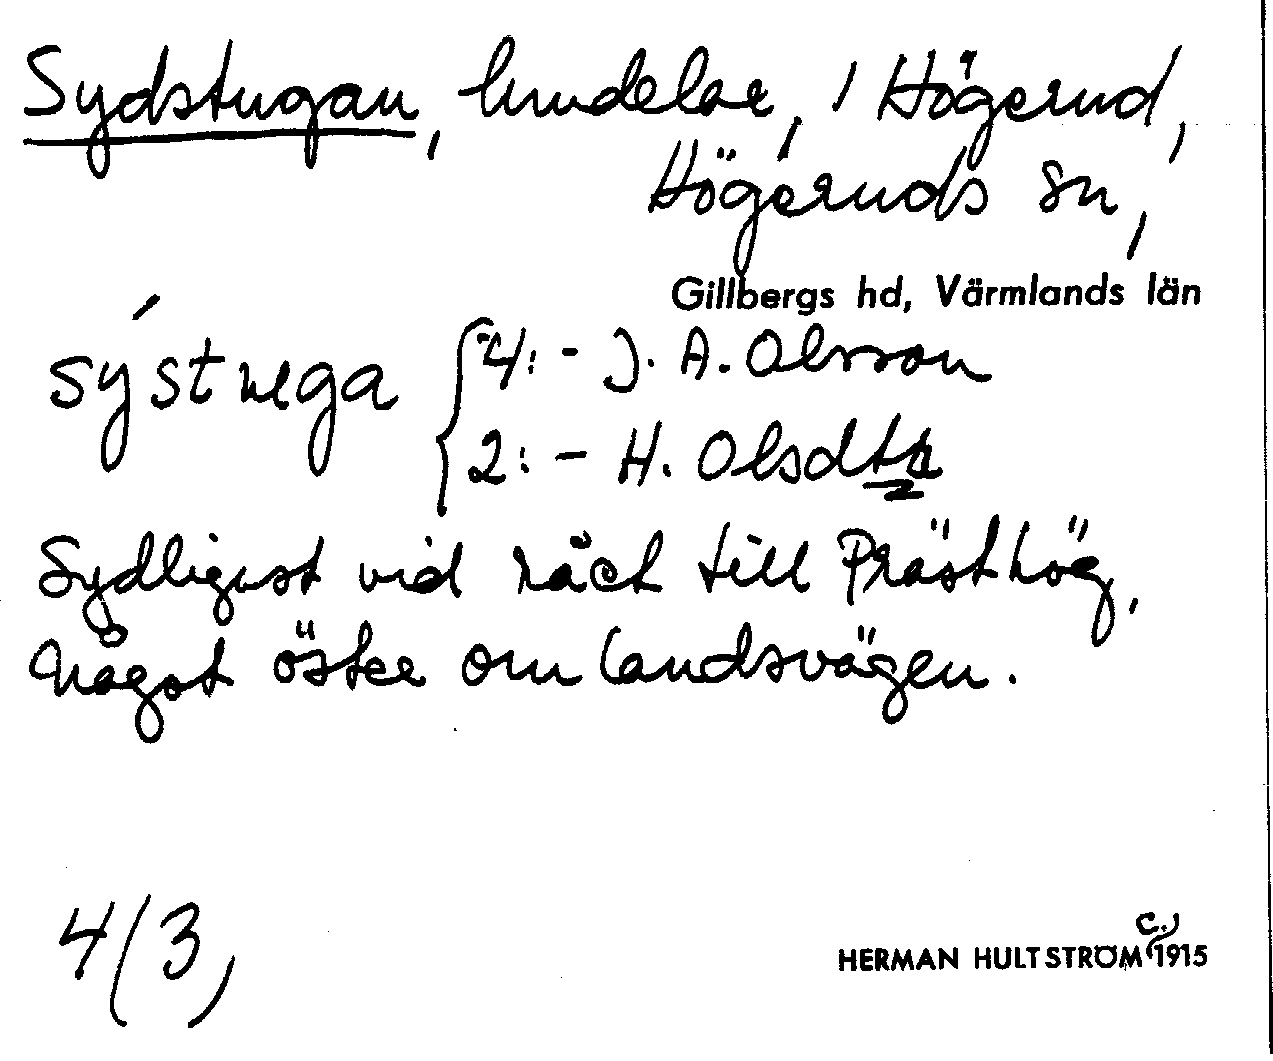 Sydstugan, hmdelar, i Högerud,
Högeruds sn,
Gillbergs hd, Värmlands län
sýstuga { 4: - J. A. Olsson
2: - H. Olsdtr
Sydligast vid räck till Prästhög,
något öster om landsvägen.
4/3,
HERMAN HULTSTRÖM c. 1915